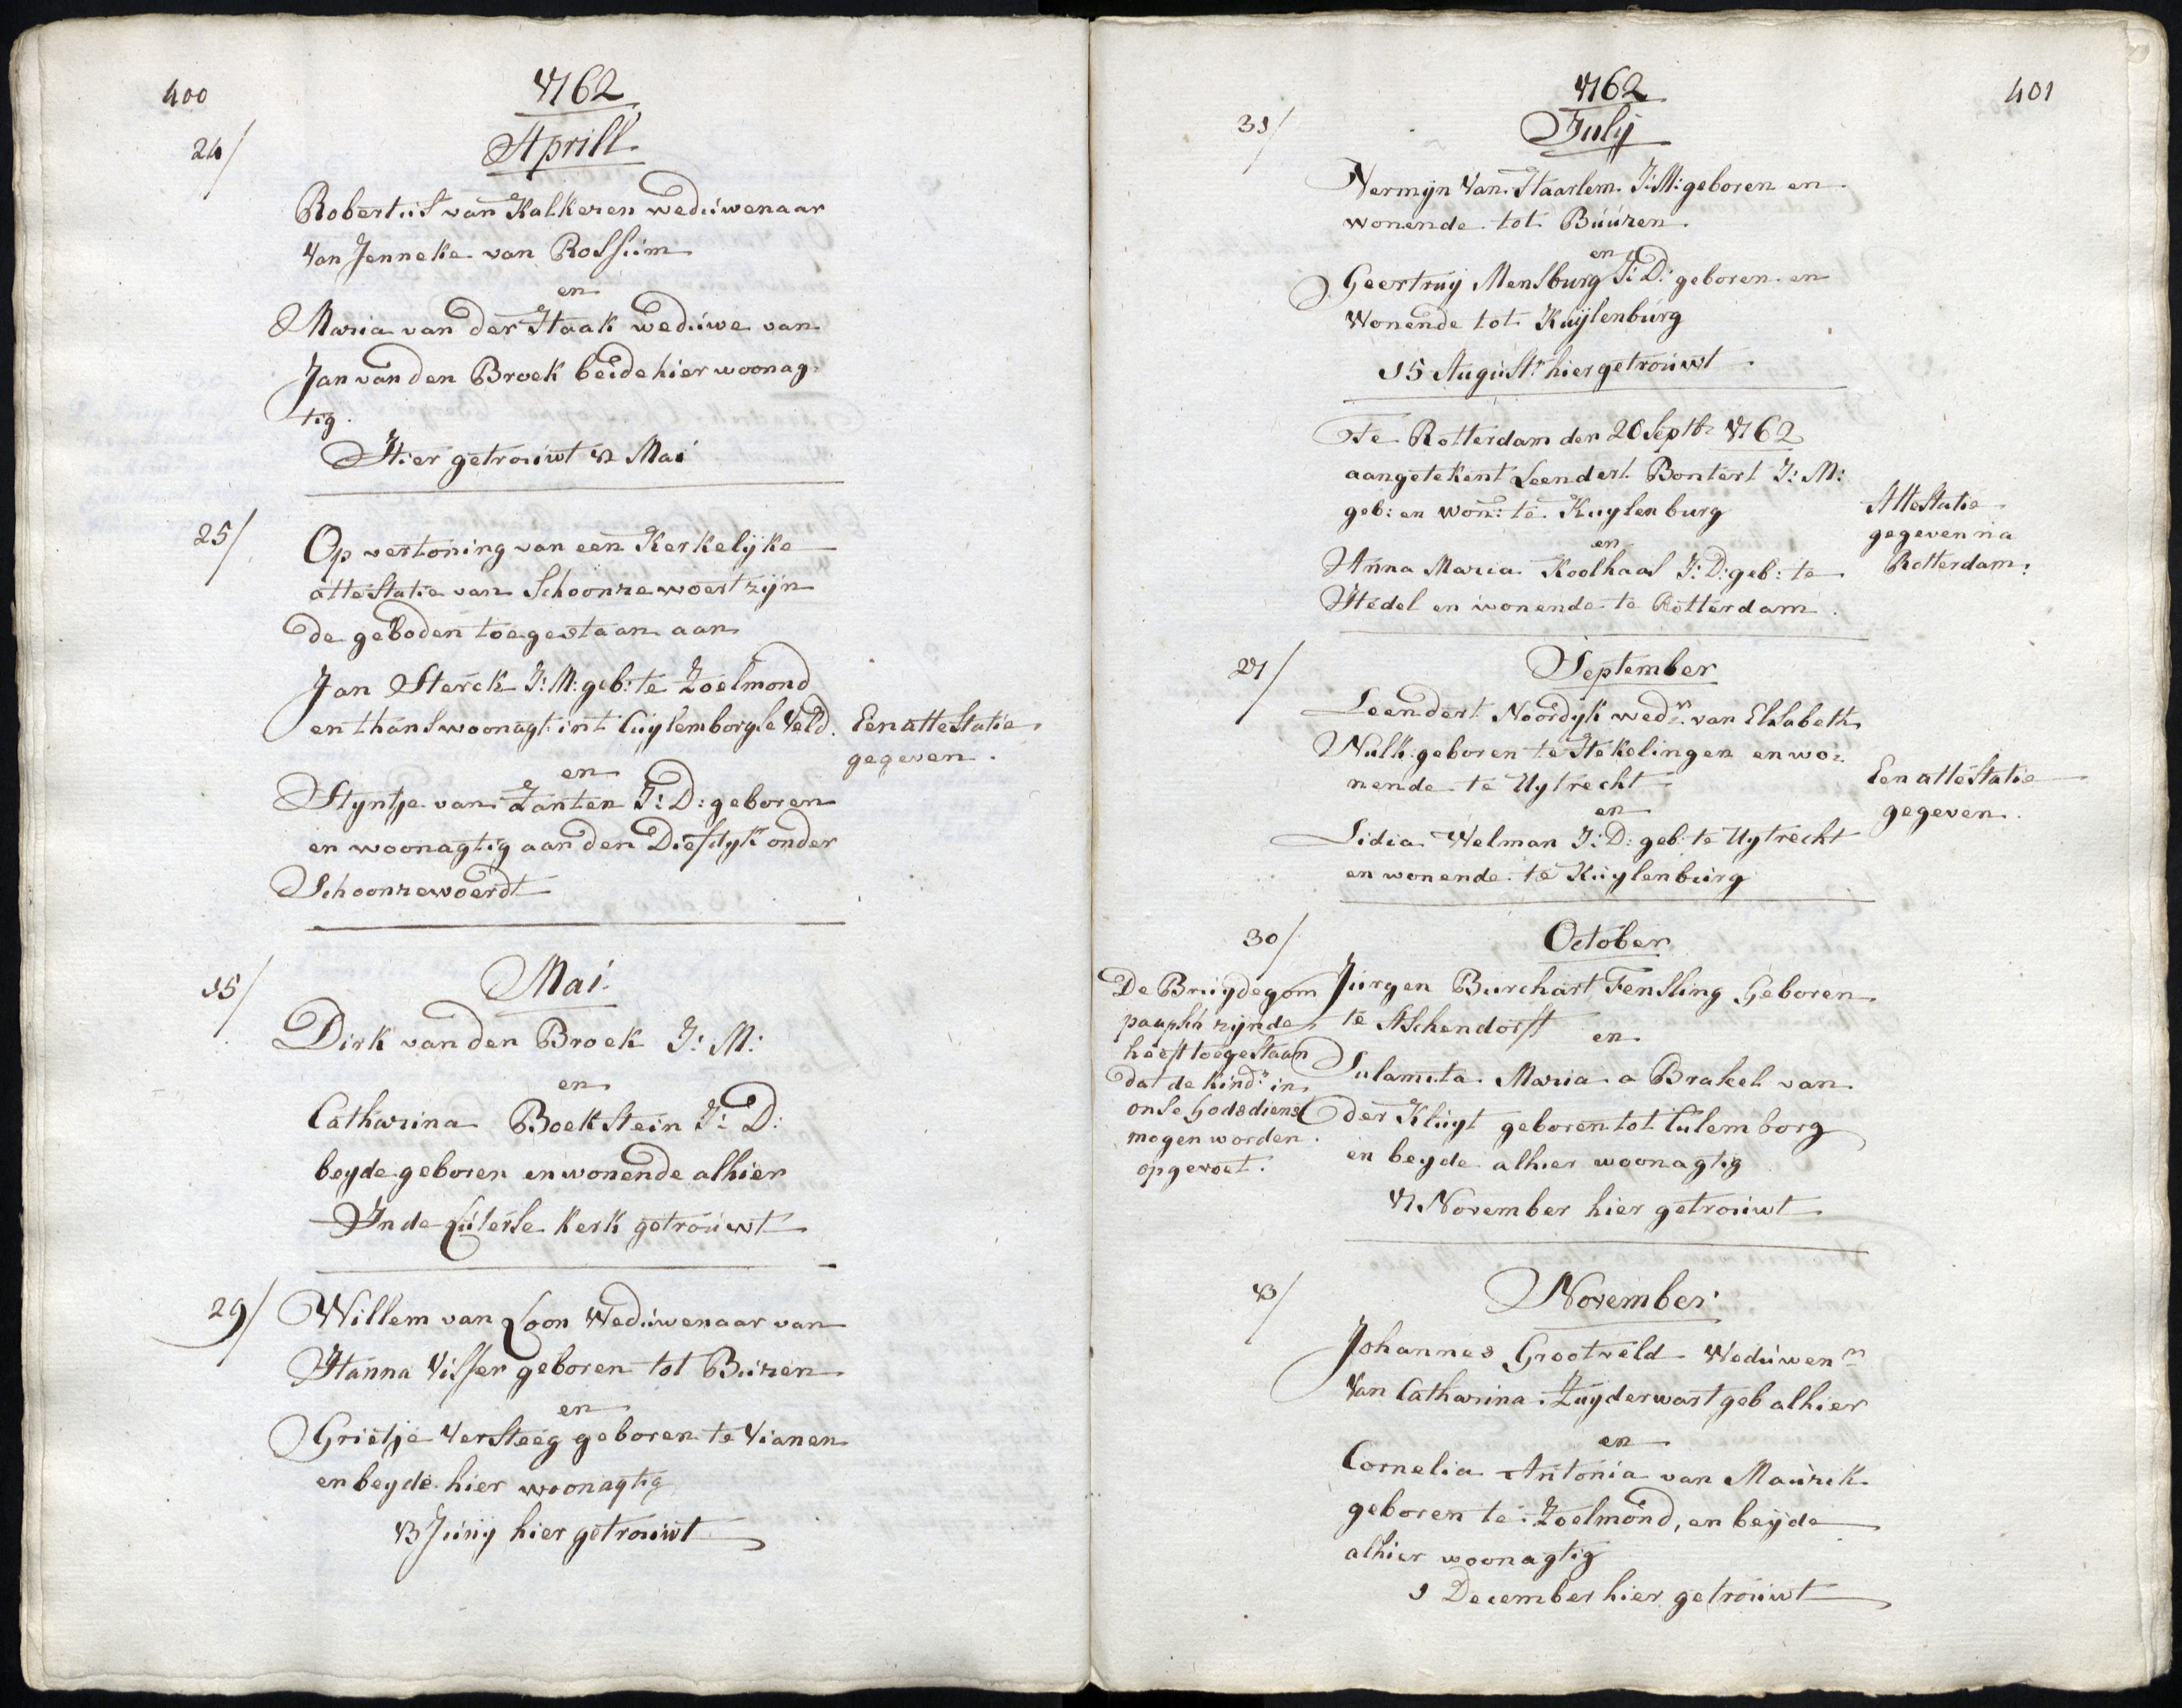 400
1762
24/
Aprill
Robertus van Kalkeren weduwenaar
Van Jenneke van Rossum
en
Maria van der Haak weduwe van
Jan van den Broek beide hier woonag-
tig.
Hier getrouwt 12 Mai
25/
Op vertoning van een Kerkelyke
attestatie van Schoonrewoert zyn
de geboden toegestaan aan
Jan Sterck J: M: geb: te Zoelmond
en thans woonagt: int Cuylemborgse Veld.
Een attestatie
gegeven.
en
Styntje van Zanten J: D: geboren
en woonagtig aan den Diefdyk onder
Schoonrewoerdt
15/
Mai
Dirk van den Broek J: M:
en
Catharina Boekstein J: D:
beyde geboren en wonende alhier
In de Luterse kerk getrouwt
29/
Willem van Loon Weduwenaar van
Hanna Visser geboren tot Buren
en
Grietje Versteeg geboren te Vianen
en beyde hier woonagtig
13 Juny hier getrouwt
401
1762
31/
July
Hermyn Van Haarlem J: M: geboren en
wonende tot Buuren
en
Geertruy Mensburg J: D: geboren en
Wonende tot Kuylenburg
15 August: hier getrouwt
Te Rotterdam den 20 Septbr 1762
aangetekent Leendert Bontert J: M:
geb: en won: te Kuylenburg
en
Anna Maria Koolhaas J: D: geb: te
Hedel en wonende te Rotterdam.
Attestatie
gegeven na
Rotterdam:
27/
September
Leendert Noordyk wedr. van Elsabeth
Nulk geboren te Hekelingen en wo-
nende te Uytrecht
en
Lidia Welman J: D: geb: te Uytrecht
en wonende te Kuylenburg
Een attestatie
gegeven.
30/
October
Jurgen Burchart Fensling Geboren
te Aschendorff
en
Sulamita Maria a Brakel van
der Kluyt geboren tot Culemborg
en beyde alhier woonagtig
17 November hier getrouwt
De Bruydegom
paapsch zynde
heeft toegestaan
dat de kindr. in
onse Godsdienst
mogen worden
opgevoet.
13/
November
Johannes Grootveld Weduwenr
Van Catharina Zuyderwart geb alhier
en
Cornelia Antonia van Maurik
geboren te Zoelmond, en beyde
alhier woonagtig
1 December hier getrouwt